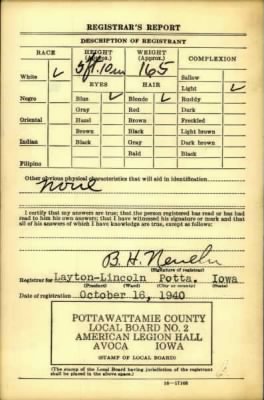 REGISTRAR'S REPORT
DESCRIPTION OF REGISTRANT
RACE HEIGHT (Approx.) WEIGHT (Approx.) COMPLEXION
5 ft. 10 in 165
White ✓ Sallow
EYES HAIR Light ✓
Negro Blue ✓ Blonde ✓ Ruddy
Gray Red Dark
Oriental Hazel Brown Freckled
Brown Black Light brown
Indian Black Gray Dark brown
Bald Black
Filipino
Other obvious physical characteristics that will aid in identification
None
I certify that my answers are true; that the person registered has read or has had
read to him his own answers; that I have witnessed his signature or mark and that
all of his answers of which I have knowledge are true, except as follows:
B. H.
(Signature of registrar)
Registrar for Layton-Lincoln Potta. Iowa
(Precinct) (Ward) (City or county) (State)
Date of registration October 16, 1940
POTTAWATTAMIE COUNTY
LOCAL BOARD NO. 2
AMERICAN LEGION HALL
AVOCA IOWA
(STAMP OF LOCAL BOARD)
(The stamp of the Local Board having jurisdiction of the registrant
shall be placed in the above space.)
16-17105